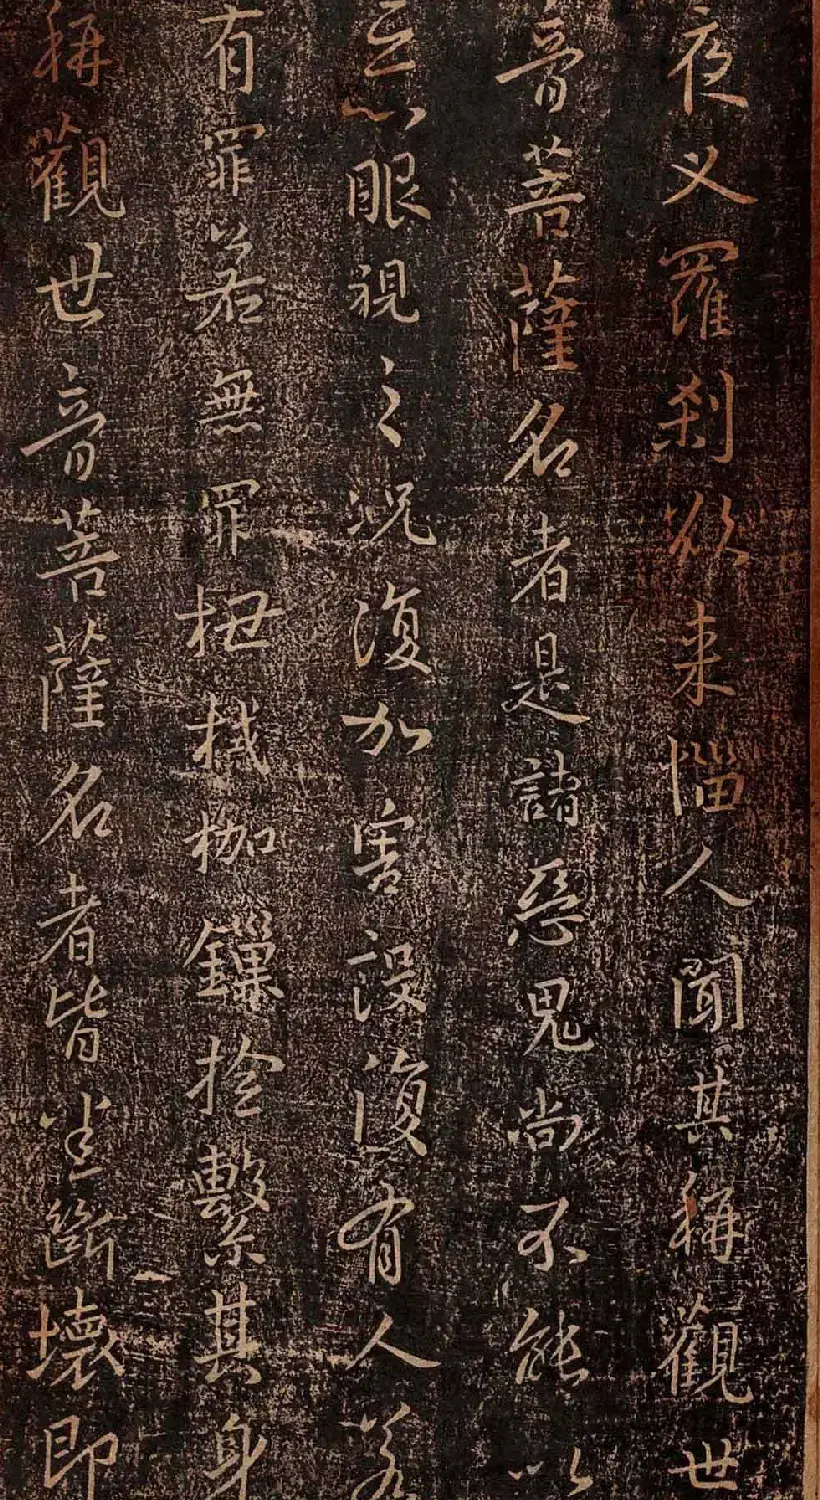 夜叉羅刹欲来惱人聞其稱觀世
音菩薩名者是諸惡鬼尚不能以
惡眼視之況復加害設復有人若
有罪若無罪杻械枷鏁撿繫其身
稱觀世音菩薩名者皆悉斷壞即